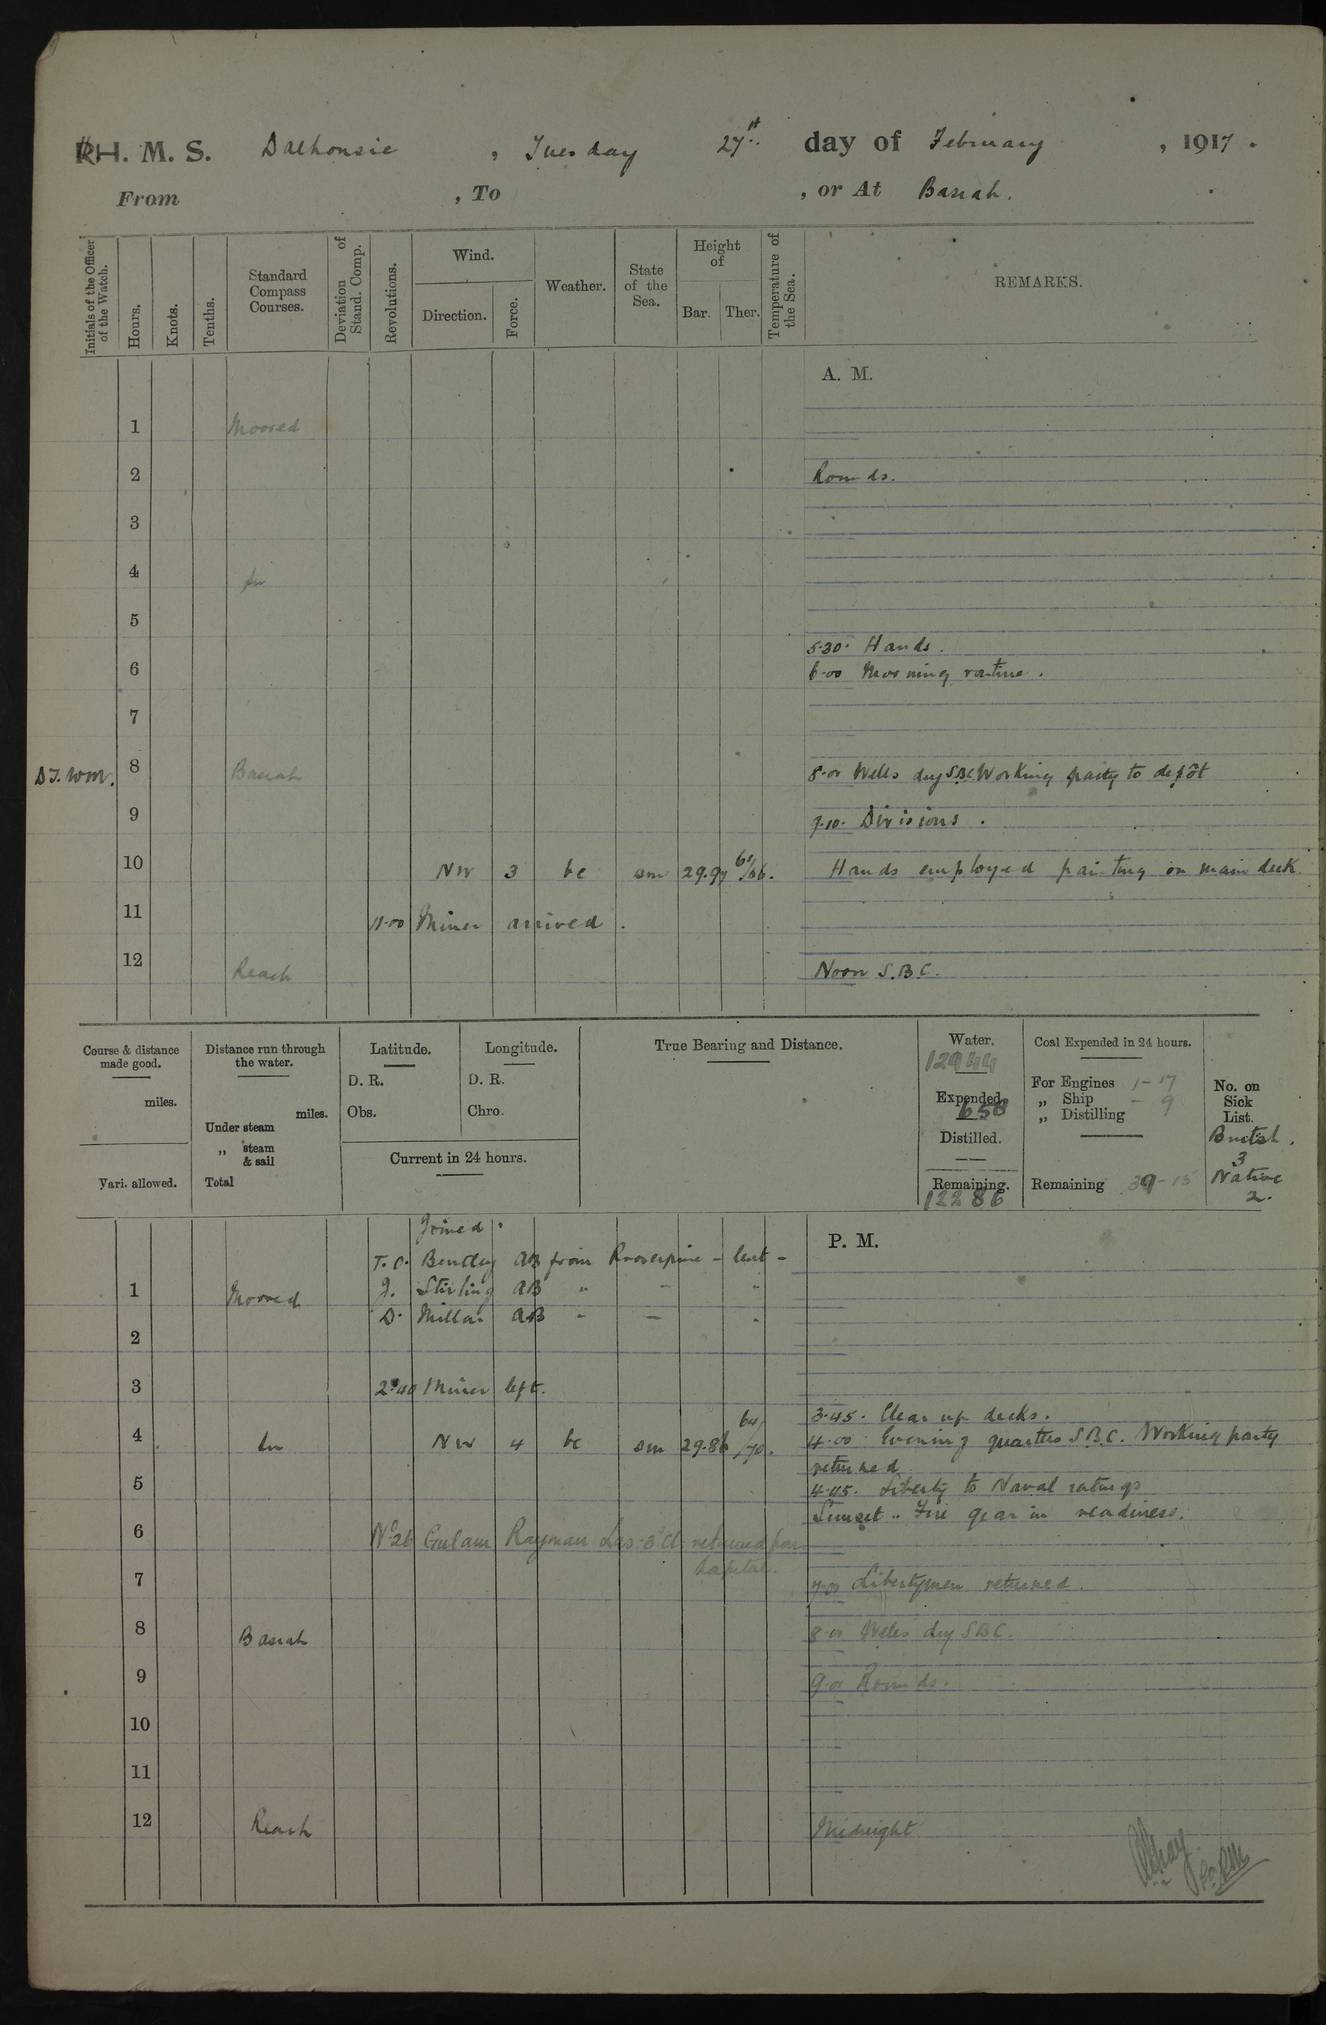 R H. M. S. Dalhousie , Tuesday 27st day of February , 1917 .
From , To , or At Basrah .
Initials of the Officer of the Watch.
Hours.
Knots.
Tenths.
Standard Compass Courses.
Deviation of Stand. Comp.
Revolutions.
Wind.
Direction.
Force.
Weather.
State of the Sea.
Height of
Bar.
Ther.
Temperature of the Sea.
REMARKS.
A. M.
1 Moored
2 Rounds.
3
4 In
5
5.30. Hands.
6 6.00 Morning routine.
7
D.J.WM. 8 Basrah 8.00 Weles dug S.B.C. Working party to depôt
9 9.10. Divisions.
10 NW 3 bc sm 29.97 /66. Hands employed painting on main deck.
11 11.00 Miner arrived.
12 Reach Noon S.B.C.
Course & distance made good.
miles.
Vari. allowed.
Distance run through the water.
miles.
Under steam
„ steam & sail
Total
Latitude.
D. R.
Obs.
Longitude.
D. R.
Chro.
Current in 24 hours.
True Bearing and Distance.
Water.
12944
Expended.
658
Distilled.
Remaining.
12286
Coal Expended in 24 hours.
For Engines 1-17
„ Ship - 9
„ Distilling
Remaining 39-15
No. on Sick List.
British.
3
Native
2.
P. M.
Joined.
T. C. Bentley AB from Proserpine - lent -
1 Moored J. Stirling AB " - "
D. Millar AB " - "
2
3 2.40 Miner left.
3.45. Clear up decks.
4 In NW 4 bc sm 29.86 64/70. 4.00 Evening quarters S.B.C. Working party
returned
5 4.45. Liberty to Naval ratings
Sunset.. Fire gear in readiness.
6 No 26 Gulam Rayman Las. 3 Cl. returned from
hospital.
7 7.00 Libertymen returned.
8 Basrah 8.00 Weles dug SBC.
9 9.00 Rounds.
10
11
12 Reach Midnight